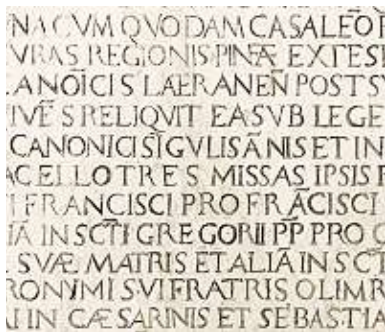 NA CVM QVODAM CASALEÕ
VRAS REGIONIS PINÆ EXTES
ANOĪCIS LAERANEÑ POST S
IVẼ S RELIQVIT EA SVB LEGE
CANONICI SĪGVLIS ÃNIS ET IN
ACELLO TRES MISSAS IPSIS
FRANCISCI PRO FRÃCISCI
IÃ IN SCT̄I GREGORII PP̄ PRO
SVÆ MATRIS ET ALIÃ IN SCT
RONYMI SVI FRATRIS OLIM R
IN CÆSARINIS ET SEBASTIA